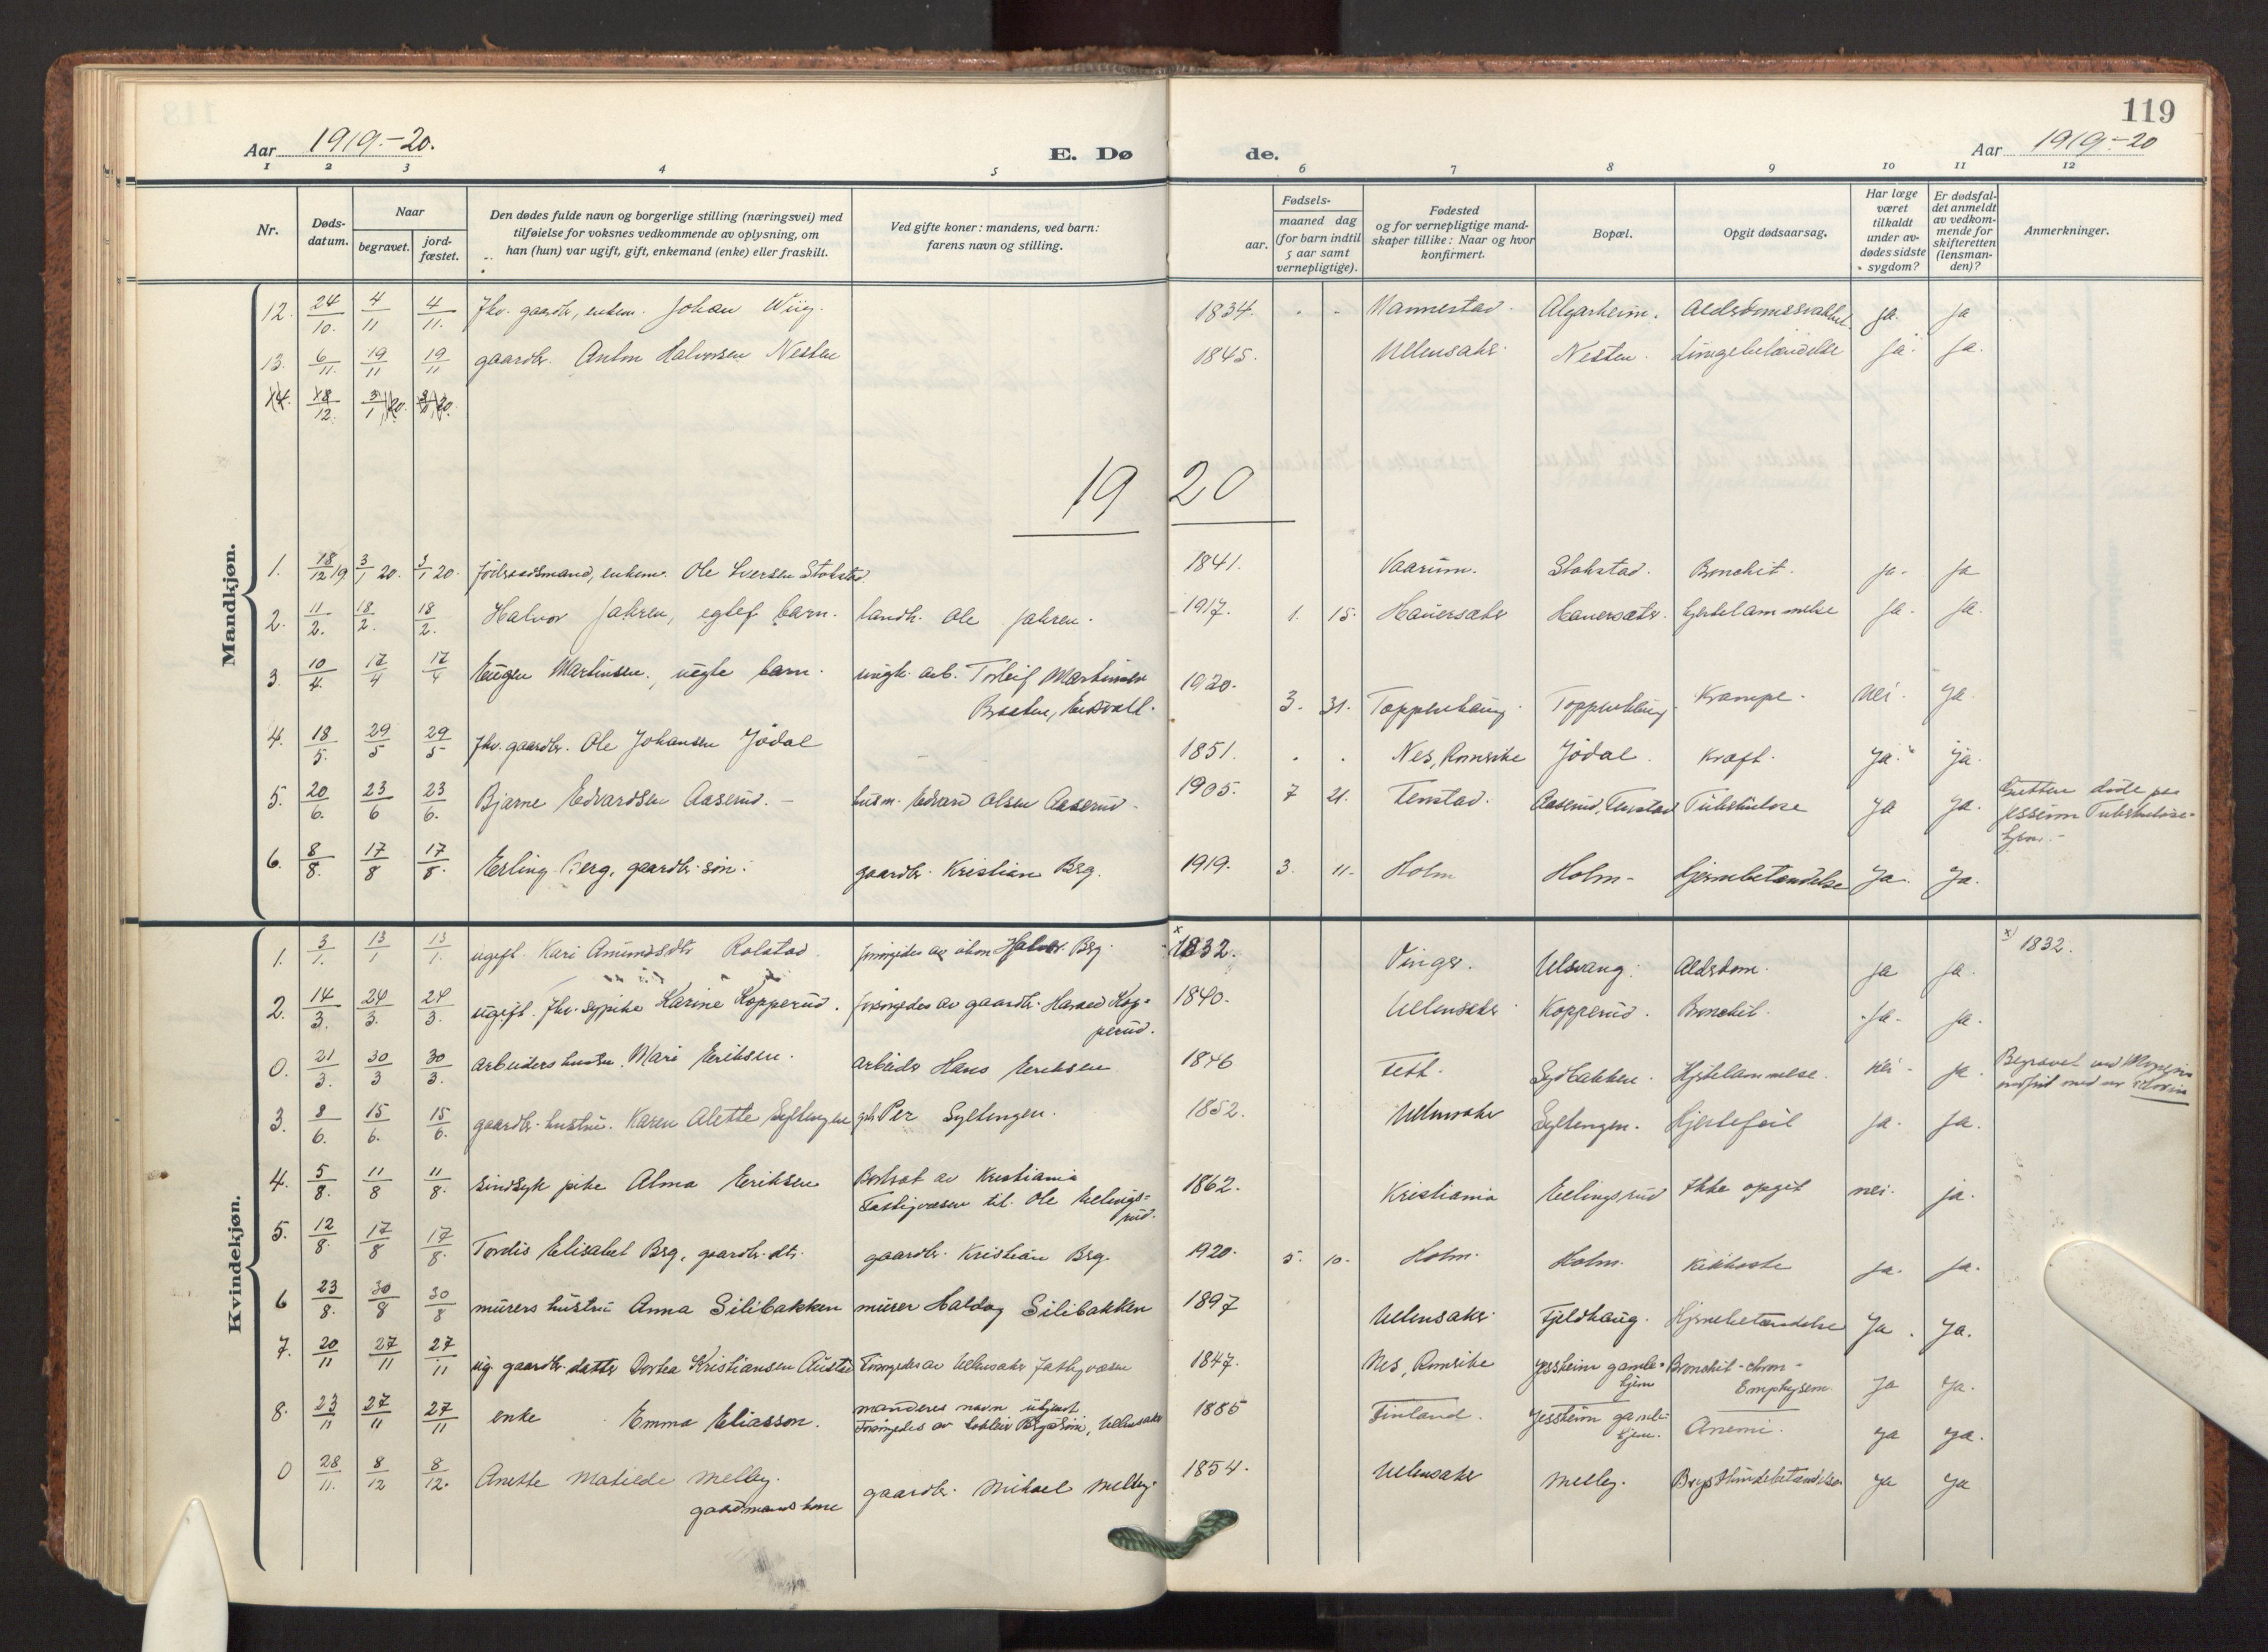 119
Aar 1919.-20.
E. Dø
de.
Aar 1919-20
1 2 3 4 5 6 7 8 9 10 11 12
Nr.
Døds-
datum.
Naar
begravet.
jord-
fæstet.
Den dødes fulde navn og borgerlige stilling (næringsvei) med
tilføielse for voksnes vedkommende av oplysning, om
han (hun) var ugift, gift, enkemand (enke) eller fraskilt.
Ved gifte koner: mandens, ved barn:
farens navn og stilling.
Fødsels-
aar.
maaned dag
(for barn indtil
5 aar samt
vernepligtige).
Fødested
og for vernepligtige mand-
skaper tillike: Naar og hvor
konfirmert.
Bopæl.
Opgit dødsaarsag.
Har læge
været
tilkaldt
under av-
dødes sidste
sygdom?
Er dødsfal-
det anmeldt
av vedkom-
mende for
skifteretten
(lensman-
den)?
Anmerkninger.
Mandkjøn.
12. 24/10. 4/11 4/11. Fhv. gaardbr, enkem. Johan Wiig. 1834. Mannestad. Algarheim. Alderdomssvakhet ja. ja
13. 6/11. 19/11 19/11 gaardbr. Anton Halvorsen Nesten 1845. Ullensaker Nesten. Lungebetændelse ja. ja.
14. 18/12. 3/1 20. 3/1 20.
19 20
1. 18/12 19 3/1 20. 3/1 20. Føderaadsmand, enkem. Ole Iversen Stokstad 1841. Vaarum. Stokstad. Bronchit. ja. ja
2. 11/2. 18/2. 18/2. Halvor Jahren, egtef. barn. landh. Ole Jahren. 1917. 1. 15. Hauersæter Hauersæter. Hjertelammelse ja. ja.
3. 10/4. 17/4 17/4 Eugen Martinsen, uegte barn. ungk. arb. Torleif Martinsen
Braaten, Eidsvoll. 1920. 3. 31. Topperhaug Topperhaug Krampe. Nei. ja.
4. 18/5. 29/5 29/5 Fhv. gaardbr. Ole Johansen Jødal 1851. Nes, Romerike Jødal. Kræft. ja. ja.
5. 20/6. 23/6 23/6. Bjarne Edvardsen Aaserud. husm. Edvard Olsen Aaserud. 1905. 7 21. Tenstad. Aaserud, Tenstad Tuberkulose ja ja. Gutten døde paa
Jessheim Tuberkulose-
hjem.
6. 8/8. 17/8 17/8. Erling Berg, gaardbr. søn. gaardbr. Kristian Berg. 1919. 3. 11. Holm Holm. Hjernebetændelse ja. ja.
Kvindekjøn.
1. 3/1. 13/1 13/1. ugift. Kari Amundsdtr Rolstad. forsørgedes av Halvor Berg. x 1832. Vinger. Ulsvang. Alderdom. ja ja. x) 1832.
2. 14/3. 24/3. 24/3. ugift. fhv. sypike Karine Kopperud. forsørgedes av gaardbr. Hans Kop-
perud. 1840. Ullensaker Kopperud. Bronchit. ja. ja.
0. 21/3. 30/3 30/3. arbeiders hustru. Mari Eriksen. arbeider Hans Eriksen 1846 Fett. Sydbakken. Hjertelammelse. nei. ja. Begravet ved
3. 8/6. 15/6. 15/6. gaardbr. hustru. Karen Alette Syltengen gbr Per Syltengen. 1852. Ullensaker Syltengen. Hjertefeil ja. ja.
4. 5/8. 11/8 11/8. sindsyk pike Alma Eriksen Bortsat av Kristiania
Fattigvæsen til Ole Ellings-
rud. 1862. Kristiania Ellingsrud Ikke opgit nei. ja.
5. 12/8. 17/8 17/8. Tordis Elisabet Berg, gaardbr. dtr. gaardbr. Kristian Berg. 1920. 5. 10. Holm. Holm. Kikhoste ja. ja.
6 23/8. 30/8 30/8 murers hustru Anna Silibakken murer Haldag Silibakken 1897 Ullensaker Fjeldhaug. Hjernebetændelse ja. ja.
7. 20/11 27/11 27/11 ug. gaardbr. datter Dortea Kristiansen Austad Forsørgedes av Ullensaker fattigvæsen 1847. Nes, Romerike Jessheim gamle-
hjem Bronchit-chron-
Emphysem. ja ja.
8. 23/11 27/11 27/11 enke Emma Eliasson. mandens navn ukjent.
Forsørgedes av Ullensaker 1885 Finland. Jessheim gamle-
hjem. Anemi. ja ja.
0 28/11. 8/12 8/12. Anette Matilde Melby.
gaardmandskone gaardbr. Mikael Melby. 1854. Ullensaker Melby. Brysthindebetændelse ja ja